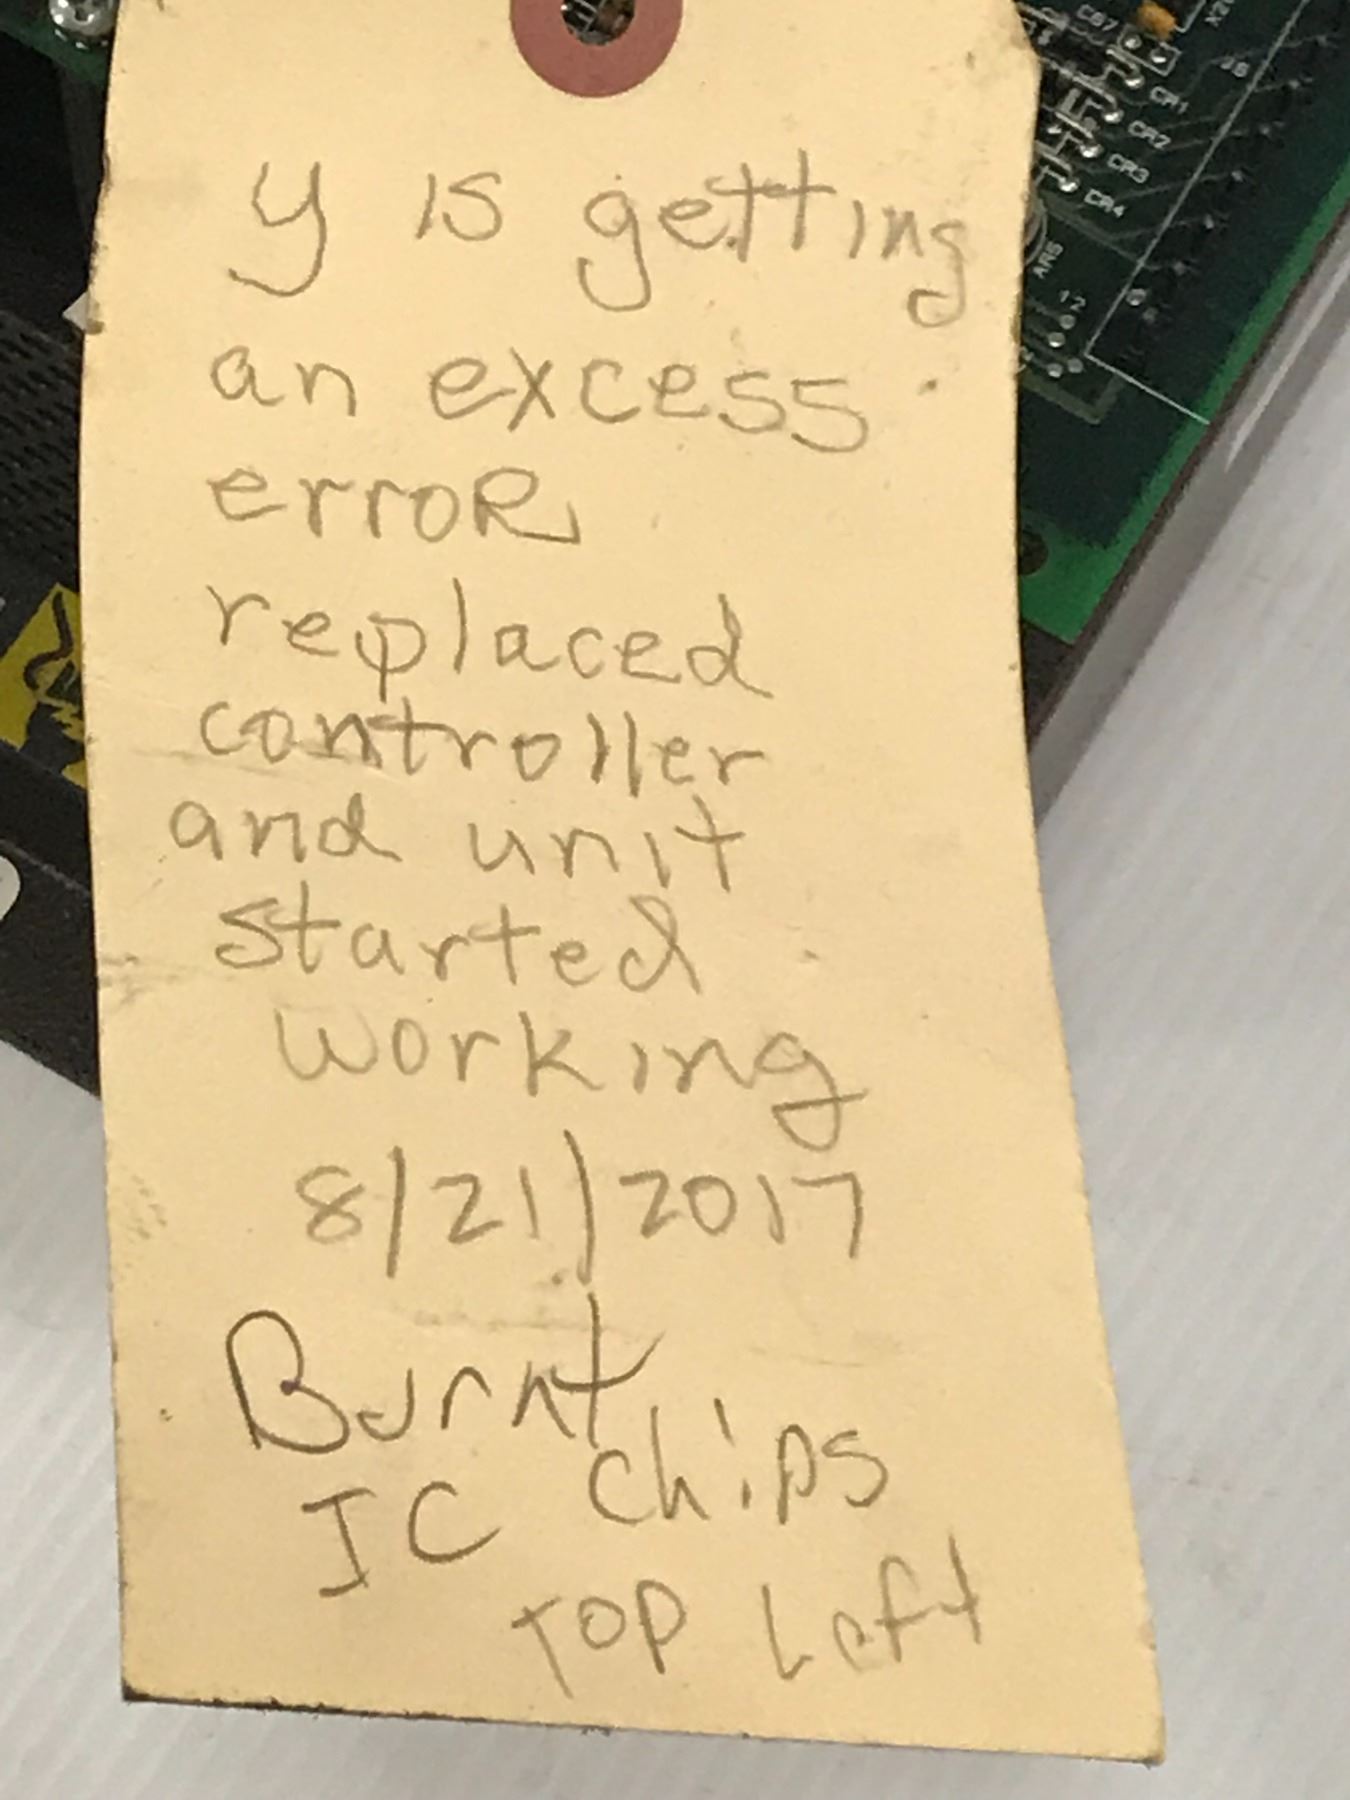 y is getting
an excess
erroR
replaced
controller
and unit
started
working
8/21/2017
Burnt
IC chips
TOP Left
CR7
CR1
CR2
CR3
CR4
AR5
12
J6